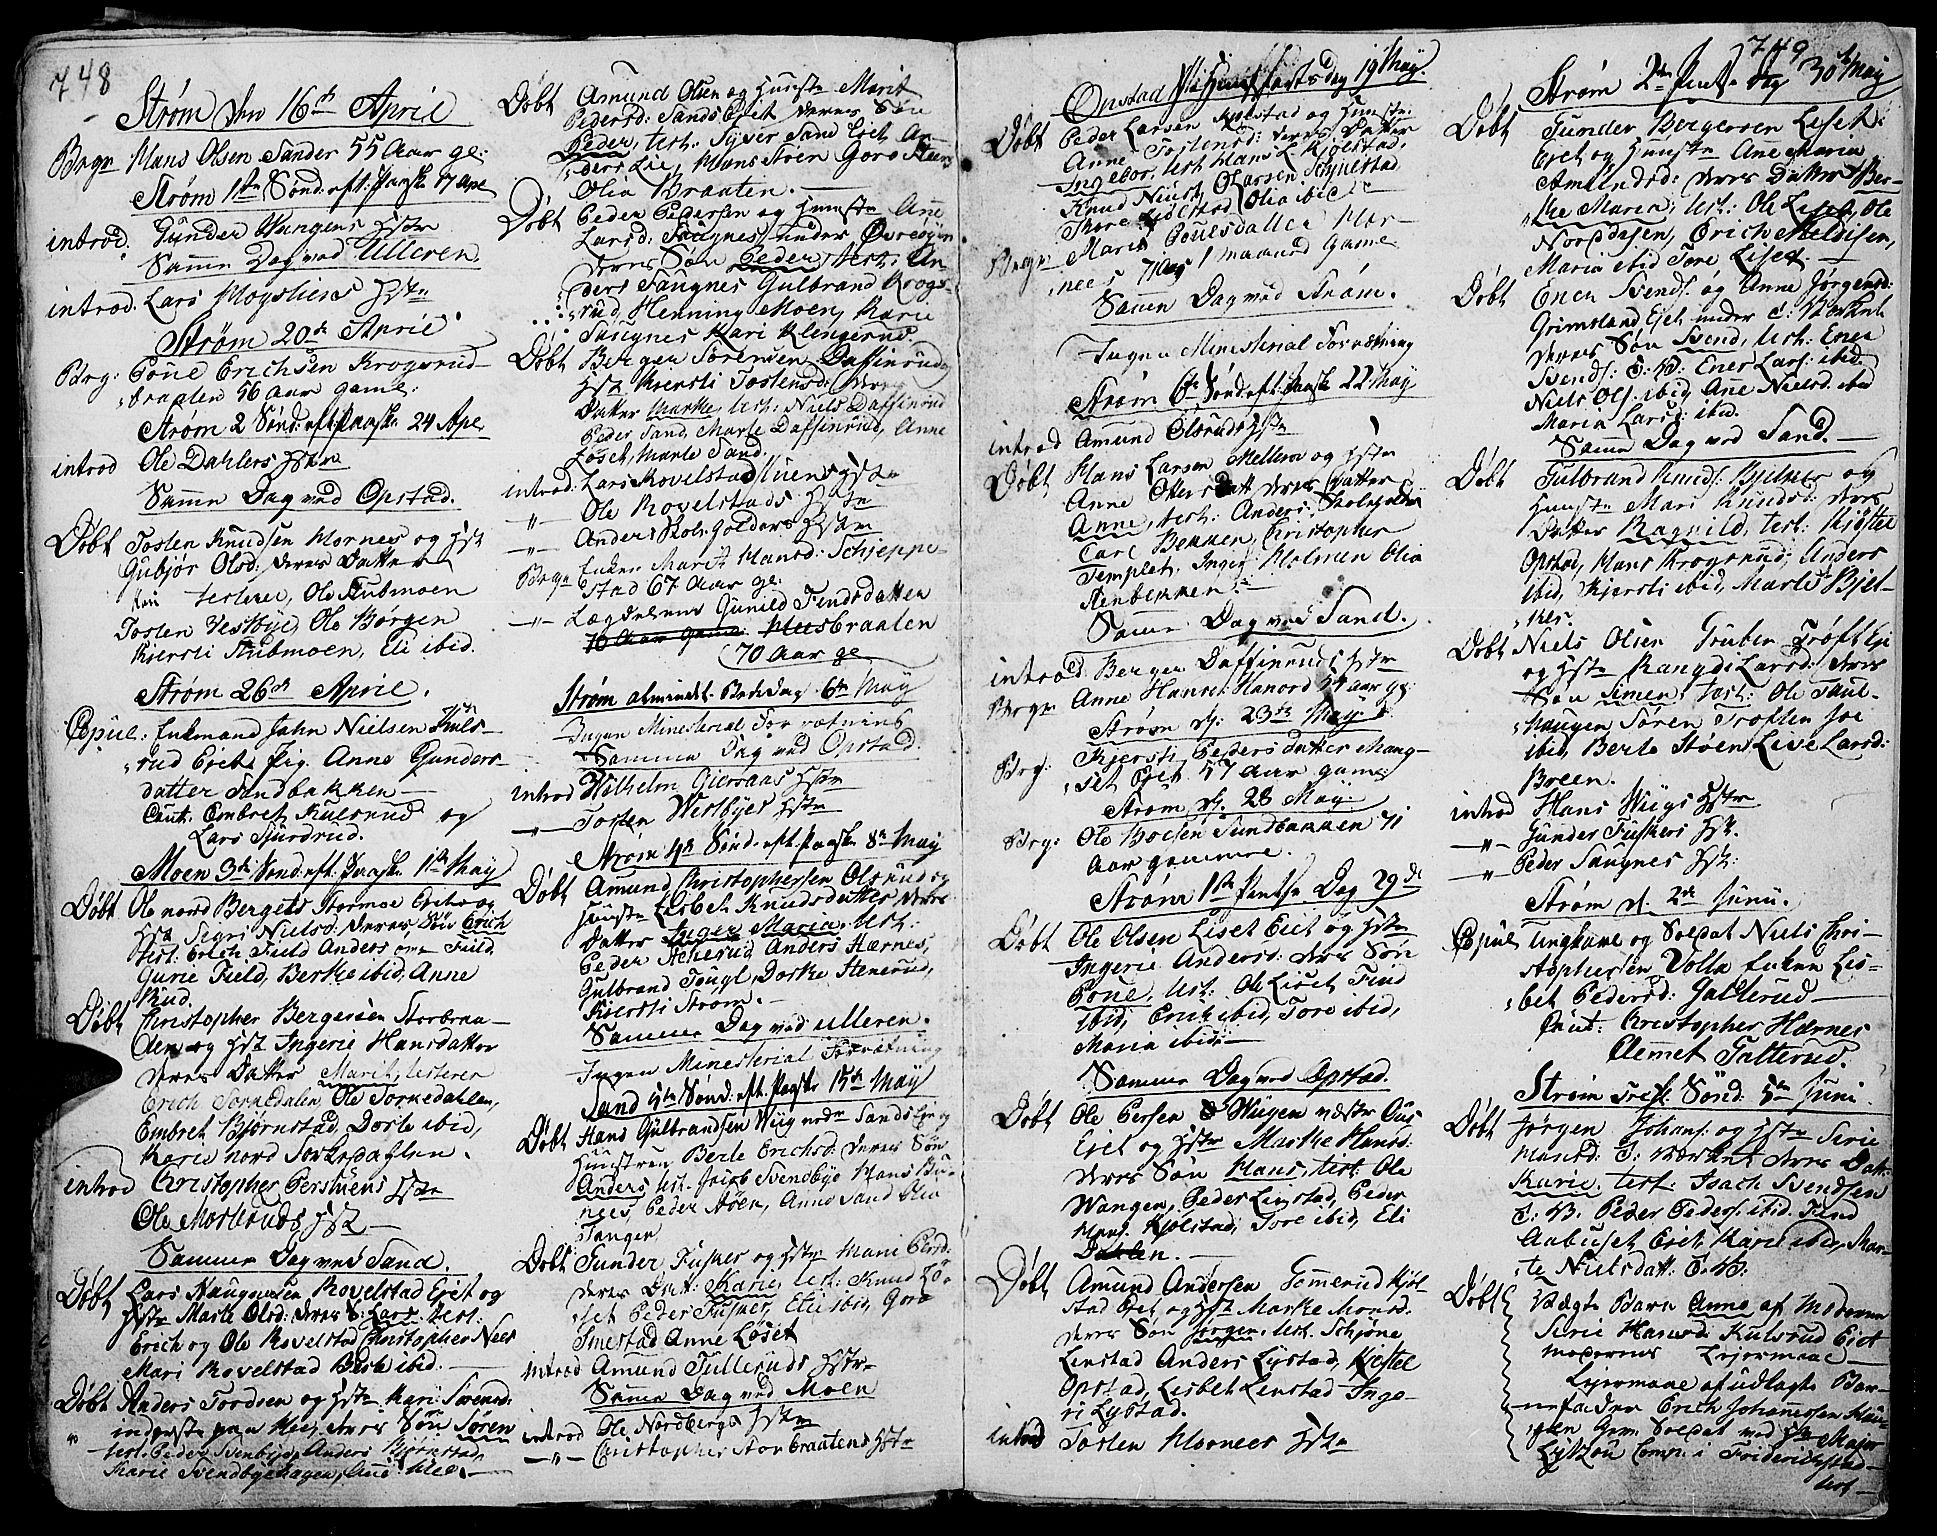 748
Strøm den 16de April
Begr Hans Olsen Sander 55 Aar ge:
Strøm 1te Sønd: eft: Paaske 17 Apr
introd. Gunder Wangens Hstr
Samme Dag ved Ulleren.
introd. Lars Mogstuens Hstr
Strøm 20de April
Begr: Poul Erichsen Krogsrud-
braaten 56 Aar gamel.
Strøm 2 Sønd: eft: Paaske 24 Apr
introd Ole Dahlers Hstr
Samme Dag ved Opstad.
Døbt Tosten Knudsen Hornes og Hst
Gubjør Olsd: deres Datter
Kari testerer, Ole Stubmoen
Tosten Vestbye, Ole Børgen
Kiersti Stubmoen, Eli ibid.
Strøm 26de April.
Copul: Enkemand John Nielsen Kuls-
rud Eiets Pig. Anne Gunders-
datter Sandbakken
Caut: Embret Kulsrud og
Lars Sjurdrud.
Moen 3de Sønd: eft: Paaske 1te May
Døbt Ole nord Bergets Stormoe Eiet og
Hst Segri Nielsd: deres Søn Erich
test. Erich Field Anders Field
Gurie Field, Berthe ibid, Anne
Rud.
Døbt Christopher Bergersen Storbraa-
ten og Hst Ingerie Hansdatter
deres Datter Marit, testerer
Erich Torkedalen, Ole Torkedahlen,
Embret Bjørnstad, Dorte ibid,
Karie nord Torkedahlen.
introd Christopher Perstuens Hstr
Ole Mosteruds Hst
Samme Dag ved Sand.
Døbt Lars Haugensen Rovelstad Eiet og
Hstr Marte Olsd: deres S: Lars, test:
Erich og Ole Rovelstad Christopher Nees
Mari Rovelstad Berte ibid.
Døbt Anders Tordsen og Hst Kari Svensd:
inderste paa Nes, deres Søn Søren
test: Peder Svenbye, Anders Bjørnstad,
Karie Svendbyehagen, Ane Nes.
Døbt Amund Olsen og Hunstr Marit
Pedersd: Sands Eiet deres Søn
Peder, test: Syver Sand Eiet An-
ders Lie, Hans Støen Goro Støen
Olia Braaten.
Døbt Peder Pedersen og Hunstr Anne
Larsd: Saugnes under Øvrebyen
deres Søn Peder, test: An-
ders Saugnes Gulbrand Krogs-
rud, Henning Moen, Karie
Saugnes Kari Klengerud.
Døbt Berger Sørensen Daffinrud og
Hst Kiersti Tostensd: deres
Datter Marthe, test: Niels Daffinrud
Peder Sand, Marte Daffinrud, Anne
Løset, Marte Sand.
introd: Lars Rovelstad Stuens Hstr
-"- Ole Rovelstads Hstr
-"- Anders Skoleholders Hstr
Begr Enken Marit Hansd: Schjeppe-
stad 67 Aar ge:
-"- Lægdelem Gunild Tendsdatter
70 Aar gamel Nusbraaten
70 Aar ge
Strøm almindel: Bededag 6te May
Ingen Ministerial Forretning
Samme Dag ved Opstad.
introd Wilhelm Giersaas Hstr
-"- Tosten Westbyes Hstr
Strøm 4de Sønd: eft: Paaske 8de May
Døbt Amund Christophersen Olsrud og
Hunstr Lisbet Knudsdatter deres
Datter Inger Maria, test:
Peder Stenerud, Anders Hærnes,
Gulbrand Fougl, Dorthe Stenerud,
Kiersti Strøm.
Samme Dag ved Ulleren.
Ingen Ministerial Forretning
Sand 5te Sønd: eft: Paaske 15de May
Døbt Hans Gulbrandsen Wiig nedr Sands Ei: og
Hunstruen Berte Erichsd: deres Søn
Anders test. Jacob Svendbye Hans Bu-
nes, Peder Støen, Anne Sand Olia
Tangen
Døbt Gunder Fusker og Hstr Mari Persd:
deres Datt: Karie, test: Knud Lø-
set Peder Fusker, Eli ibid, Goro
Smestad Anne Løset
introd Amund Tulleruds Hstr
Samme Dag ved Moen
introd Ole Nordbergs Hstr
-"- Christopher Storbraatens Hstr
749
Opstad Christi Himelfartsdag 19 May.
Døbt Peder Larsen Kjølstad og Hunstr
Anne Tostensd: deres Datter
Ingebor, test: Hans L. Kjølstad,
Knud Niust, O. Larsen Kjølstad
Thore Kjølstad Olia ibid
Begr Marit Poulsdatter Hor-
nees 7 Aar 1 maaned Gamel
Samme Dag ved Strøm.
Ingen Ministerial Forretning
Strøm 6te Sønd: eft: Paaske 22 May
introd Amund Olsruds Hstr
Døbt Hans Larsen Mellem og Hstr
Anne Ottersdatt: deres Datter
Anne, test: Anders Skoleholder
Carl Bekken, Christopher
Templet, Inger Holmen Olia
Stenbekken.
Samme Dag ved Sand.
introd Berger Daffinruds Hstr
Begr Anne Hansd: Hanord 54 aar ge:
Strøm d. 23de May
Begr: Kiersti Pedersdatter Mang-
set Eiet 57 Aar gamel
Strøm d. 28 May
Begr: Ole Boesen Sundbakken 71
Aar gammel.
Strøm 1te Pintse Dag 29de
Døbt Ole Olsen Liset Eiet og Hstr
Ingerie Andersd: deres Søn
Poul, test: Ole Liset Tru​d
ibid, Erich ibid, Tore ibid,
Maria ibid.
Samme Dag ved Opstad.
Døbt Ole Persen Wiigen næstr Ous
Eiet og Hstr Marthe Hansd:
deres Søn Hans, test: Ole
Wangen, Peder Linstad, Peder
Hans: Kjølstad, Tore ibid, Eli
Dahlen.
Døbt Amund Andersen Gommerud Kjøl-
stad Eiet og Hst Marthe Monsd:
deres Søn Jørgen, test: Schjøne
Linstad Anders Lystad, Kjestel
Opstad, Lisbet Linstad Inge-
ri Lystad.
introd Tosten Hornees Hstr
Strøm 2den Pintse Dag 30te May
Døbt Gunder Bergersen Liset
Eiet og Hunstr Ane Maria
Amundsd: deres Datter Ber-
the Maria, test: Ole Liset, Ole
Norddisen, Erich Meldisen,
Maria ibid Tore Liset.
Døbt Ener Svends: og Anne Jørgensd:
Grimsland Eiet under O: Værket
deres Søn Svend, test: Ener
Svends: O: V: Ener Lars: ibid
Niels Ols: ibid Ane Nielsd: ibid
Maria Larsd: ibid.
Samme Dag ved Sand.
Døbt Gulbrand Knuds: Bjelker og
Hunstr Mari Knudsd: deres
Datter Ragnild, test: Kjøstel
Opstad, Hans Krogsrud, Anders
ibid, Kjersti ibid, Marte Bjel-
ker.
Døbt Niels Olsen Gruben Trøft Ei
og Hstr Rangdi Larsd: deres
Søn Simen, test: Ole Gaul-
haugen Søren Troften Joe
ibid, Berte Støen Live Larsd:
Breen.
introd Hans Wiigs Hstr
-"- Gunder Fuskers Hst.
-"- Peder Saugnes Hst:
Strøm d. 2de Juni.
Copul Ungkarl og Soldat Niels Chri-
stophersen Volla Enken Lis-
bet Pedersd: Galterud
Caut: Christopher Hærnes
Clemet Galterud.
Strøm Tref: Sønd: 5te Juni
Døbt Jørgen Johans: og Hstr Serie
Hansd: O: Værket deres Datt:
Karie, test: Isach Svendsen
O: V: Peder Peders: ibid Tru​d
Aabuset Eiet Karie ibid, Mar-
te Nielsdatt: O: V:
Døbt Uægte Barn Anne af Moderen
Serie Hansd: Kulsrud Eiet
moderens Leiermaal
Leiermaal af udlagte Bar-
nefader Erich Johannessen Skau-
gen Gev: Soldat ved Hr Major
Lützou Comp: i Friderichstad
test